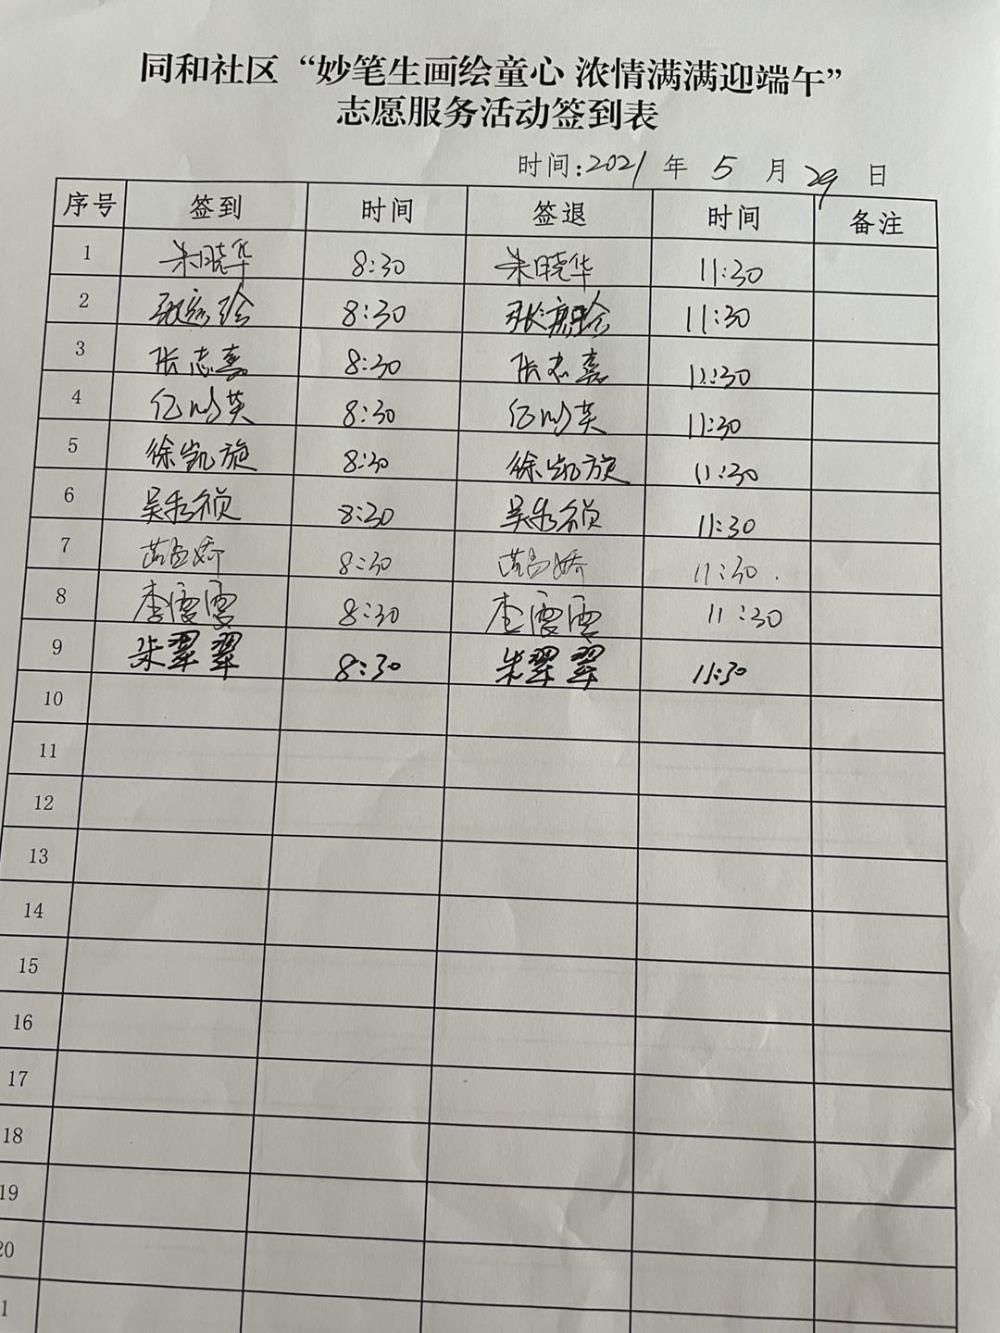 同和社区“妙笔生画绘童心 浓情满满迎端午”
志愿服务活动签到表
时间:2021年5月29日
序号 签到 时间 签退 时间 备注
1 朱晓华 8:30 朱晓华 11:30
2 8:30 11:30
3 张志嘉 8:30 张志嘉 11:30
4 8:30 11:30
5 徐凯旋 8:30 徐凯旋 11:30
6 吴秀祯 8:30 吴秀祯 11:30
7 8:30 11:30.
8 李霞霞 8:30 李霞霞 11:30
9 朱翠翠 8:30 朱翠翠 11:30
10
11
12
13
14
15
16
17
18
19
20
1